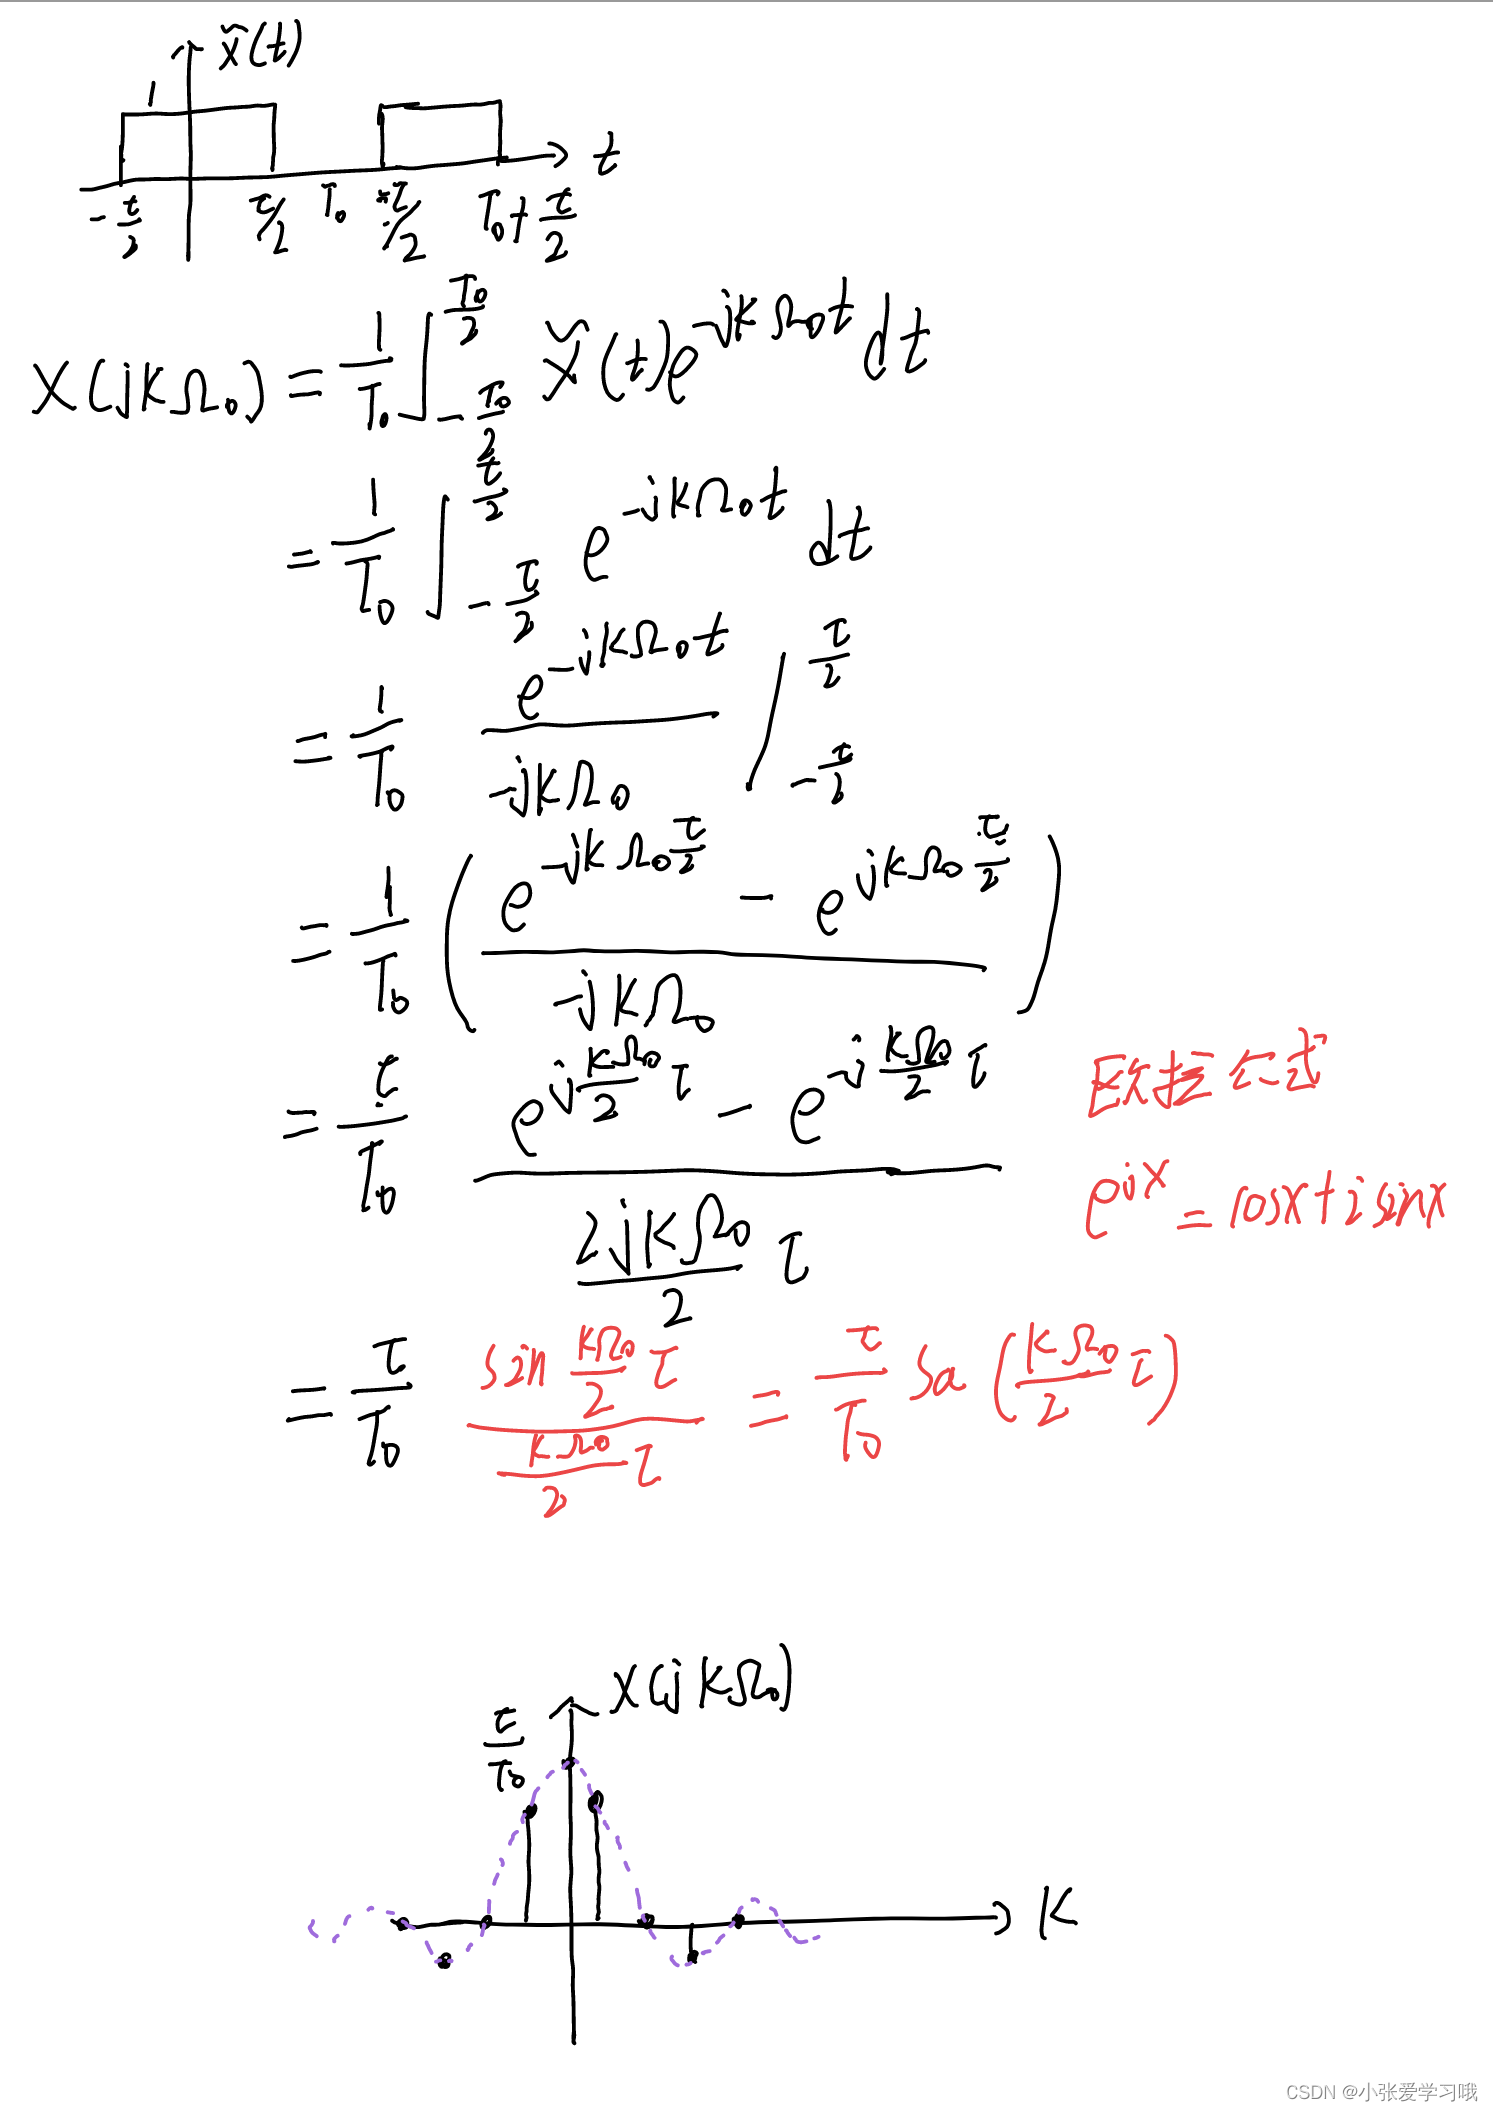 x̃(t)
1
t
-τ/2 τ/2 T₀-τ/2 T₀+τ/2
X(jkΩ₀) = 1/T₀ ∫_{-T₀/2}^{T₀/2} x̃(t)e^{-jkΩ₀t}dt
= 1/T₀ ∫_{-τ/2}^{τ/2} e^{-jkΩ₀t} dt
= 1/T₀ e^{-jkΩ₀t}/(-jkΩ₀) |_{-τ/2}^{τ/2}
= 1/T₀ ( (e^{-jkΩ₀τ/2} - e^{jkΩ₀τ/2})/(-jkΩ₀) )
= τ/T₀ (e^{j(kΩ₀/2)τ} - e^{-j(kΩ₀/2)τ})/((2jkΩ₀/2)τ)
欧拉公式
e^{ix} = cosx+isinx
= τ/T₀ (sin (kΩ₀/2)τ)/((kΩ₀/2)τ) = τ/T₀ Sa((kΩ₀/2)τ)
X(jkΩ₀)
τ/T₀
K
CSDN @小张爱学习哦